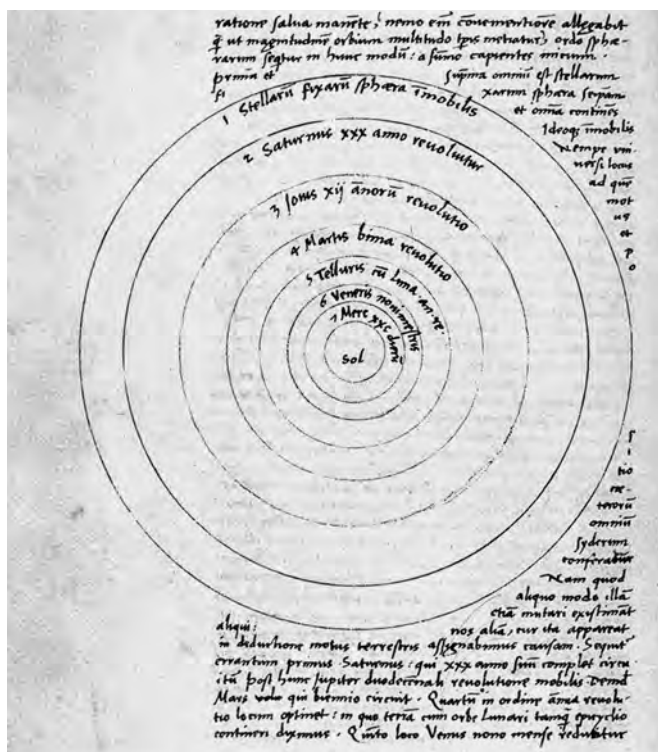 ratione salua manẽte, nemo em̃ cõuenientiorẽ allegabit
q̃ ut magnitudinẽ orbium multitudo tp̃is metiatur, ordo sphæ-
rarum seq̃tur in hunc modũ: a sũmo capientes initium.
prima et suprema omniũ est stellarum
fi xarum sphæra seip̃am
et omnia continẽs
Ideoq̃ ĩmobilis
Nempe vni
uersi locus
ad quẽ
mot
us
et
po
1 Stellarũ fixarũ sphæra ĩmobilis
2 Saturnus xxx anno reuoluitur
3 Jouis xij ãnorũ reuolutio
4 Martis bima reuolutio
5 Telluris cũ luna an. re.
6 Veneris nonimestris
7 Merc xxc dierũ
Sol
si
tio
cæ-
terorũ
omniũ
syderum
conferatur
Nam quod
aliquo modo illã
etiã mutari existimãt
aliqui: nos aliã, cur ita appareat
in deductione motus terrestris assignabimus causam. Sequit̃
errantium primus Saturnus: qui xxx anno suũ complet circu
itũ post hunc Jupiter duodecennali reuolutione mobilis. Deinde
Mars volo qui biennio circuit. Quartũ in ordine ãnua reuolu-
tio locum optinet: in quo terrã cum orbe lunari tamq̃ epicyclio
contineri diximus. Quinto loco Venus nono mense reducitur